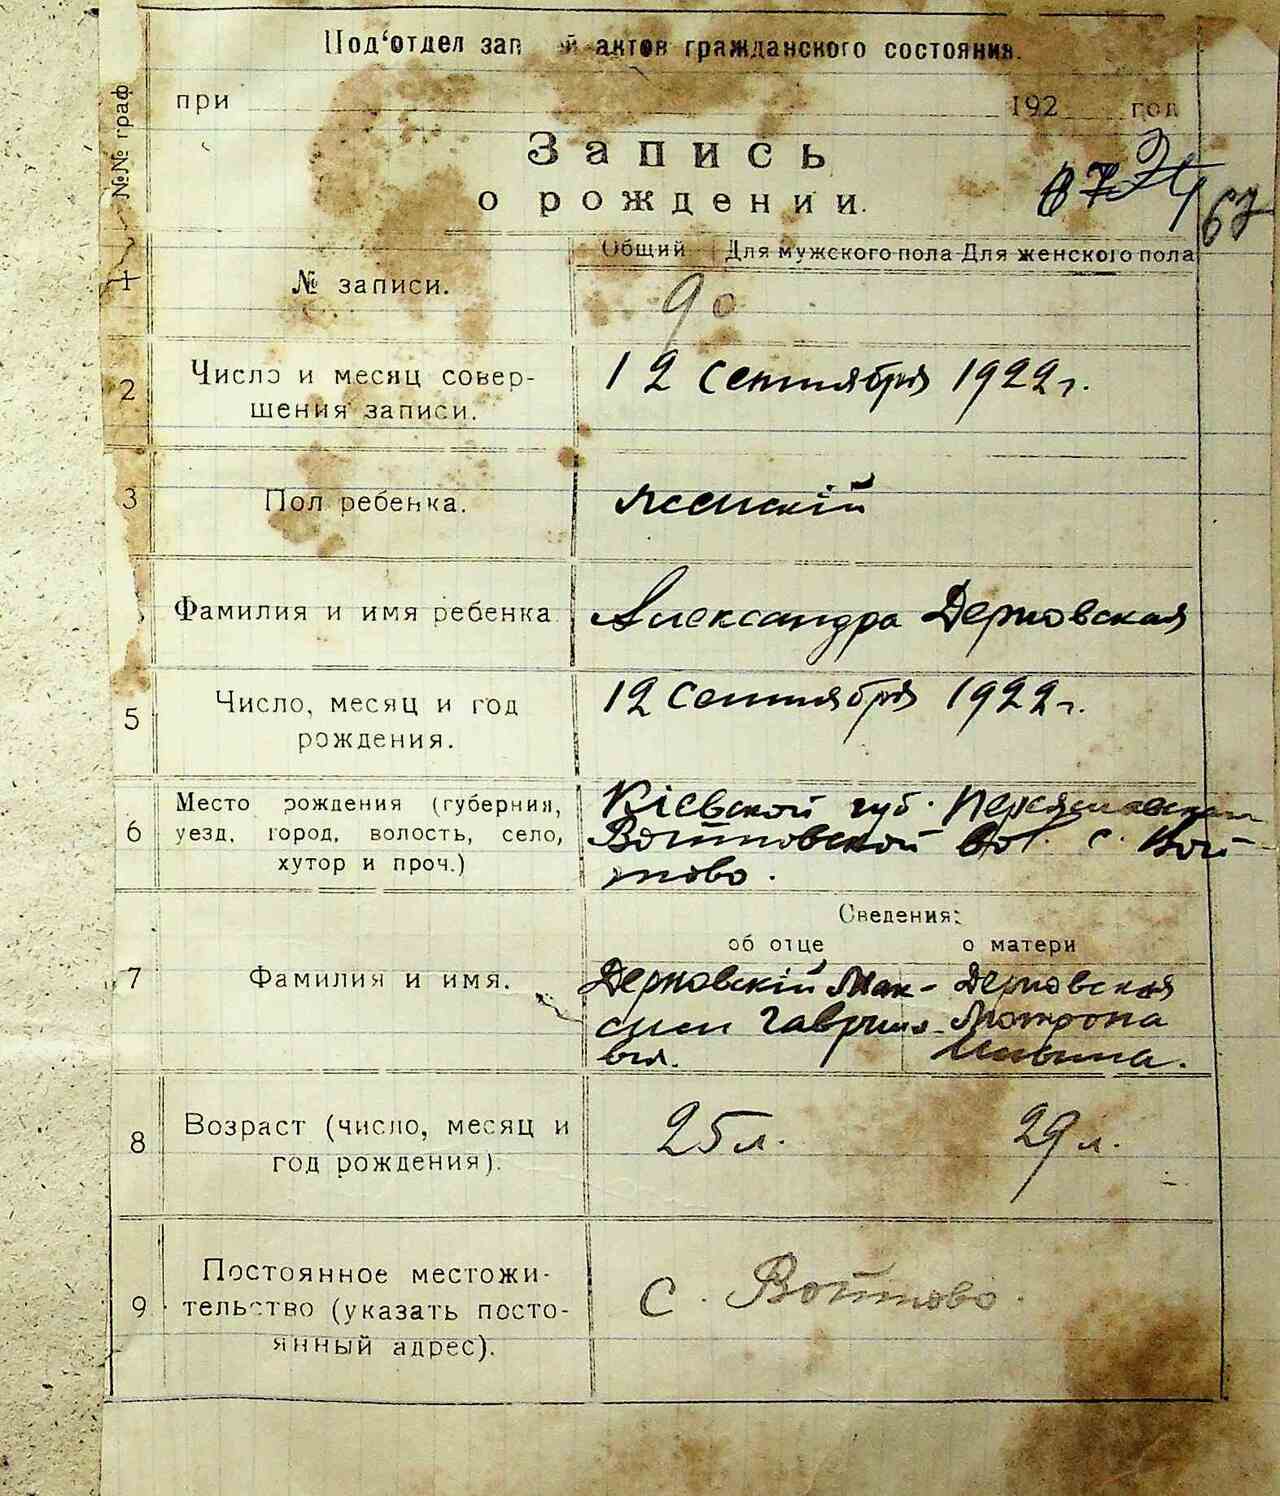 Под‘отдел зап й актов гражданского состояния.
при 192 год
№№ граф
Запись
о рождении.
67
Общий Для мужского пола Для женского пола
1 № записи. 90
2 Число и месяц совер-
шения записи.
12 сентября 1922 г.
3 Пол ребенка. женскій
Фамилия и имя ребенка Александра Дерновская
5 Число, месяц и год
рождения.
12 сентября 1922 г.
6 Место рождения (губерния,
уезд, город, волость, село,
хутор и проч.)
Кіевской губ.
Войтовской вол. с. Вой
тово.
Сведения:
об отце о матери
7 Фамилия и имя.
Дерновскій Мак-
сим Гаврило-
вич.
Дерновская
Мотрона
8 Возраст (число, месяц и
год рождения).
25 л. 29 л.
9 Постоянное местожи-
тельство (указать посто-
янный адрес).
с. Войтово.